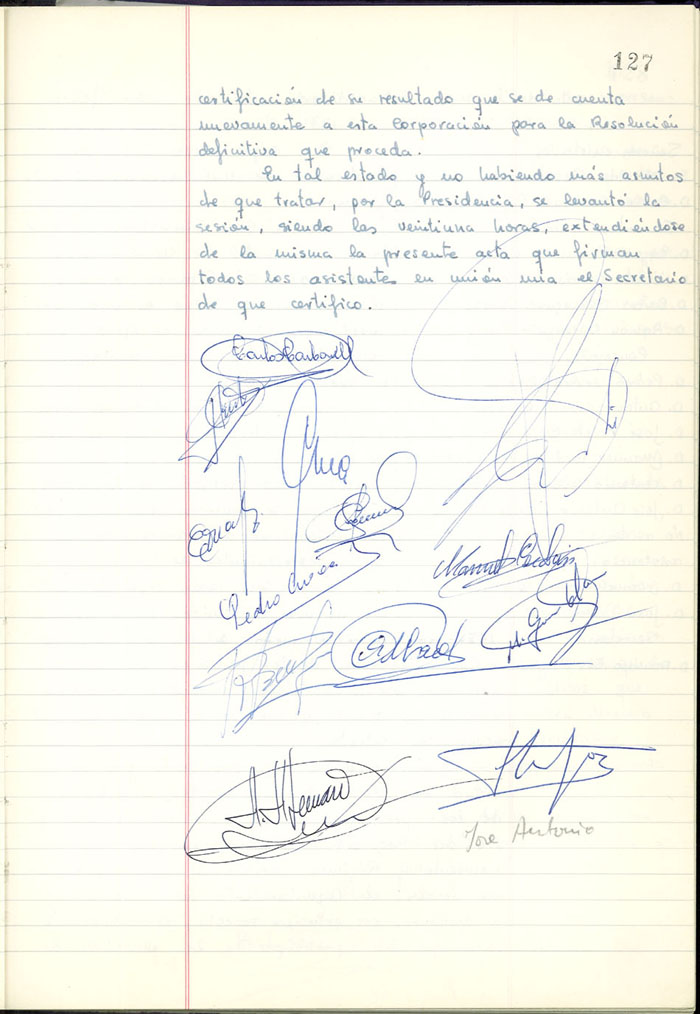 127
certificación de su resultado que se de cuenta
nuevamente a esta Corporación para la Resolución
definitiva que proceda.
En tal estado y no habiendo más asuntos
de que tratar, por la Presidencia, se levantó la
sesión, siendo las veintiuna horas, extendiéndose
de la misma la presente acta que firman
todos los asistentes en unión mia el Secretario
de que certifico.
Carlos Carbonell
Pedro
Manuel
Jose Antonio